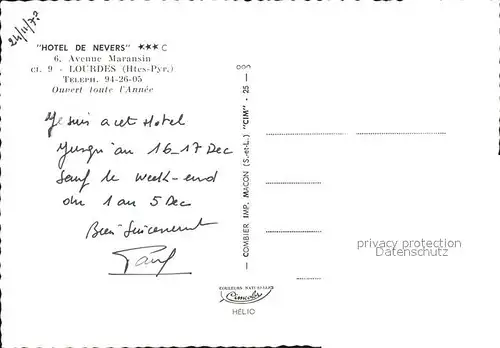 24/11/72
"HOTEL DE NEVERS" ★★★ C
6, Avenue Maransin
Cl. 9 - LOURDES (Htes-Pyr.)
TELEPH. 94-26-05
Ouvert toute l'Année
Je suis a cet Hotel
Jusqu'au 16-17 Dec
Sauf le week-end
du 1 au 5 Dec
Bien Sincerement
Paul
COMBIER IMP. MACON (S.-et-L.) "CIM" - 25 -
COULEURS NATURELLES
Cimcolor
HELIO
privacy protection